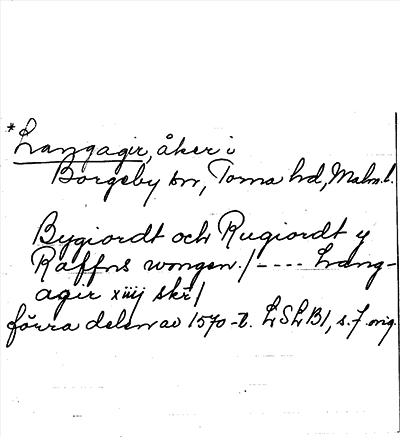 *Langagir, åker i
Borgeby sn, Torna hd, Malm. l.
Bygiordt och Rugiordt y
Raffns wongen./---- Lang-
agir xiiij skr/
förra delen av 1570-t. LSLB1, s. 7 orig.